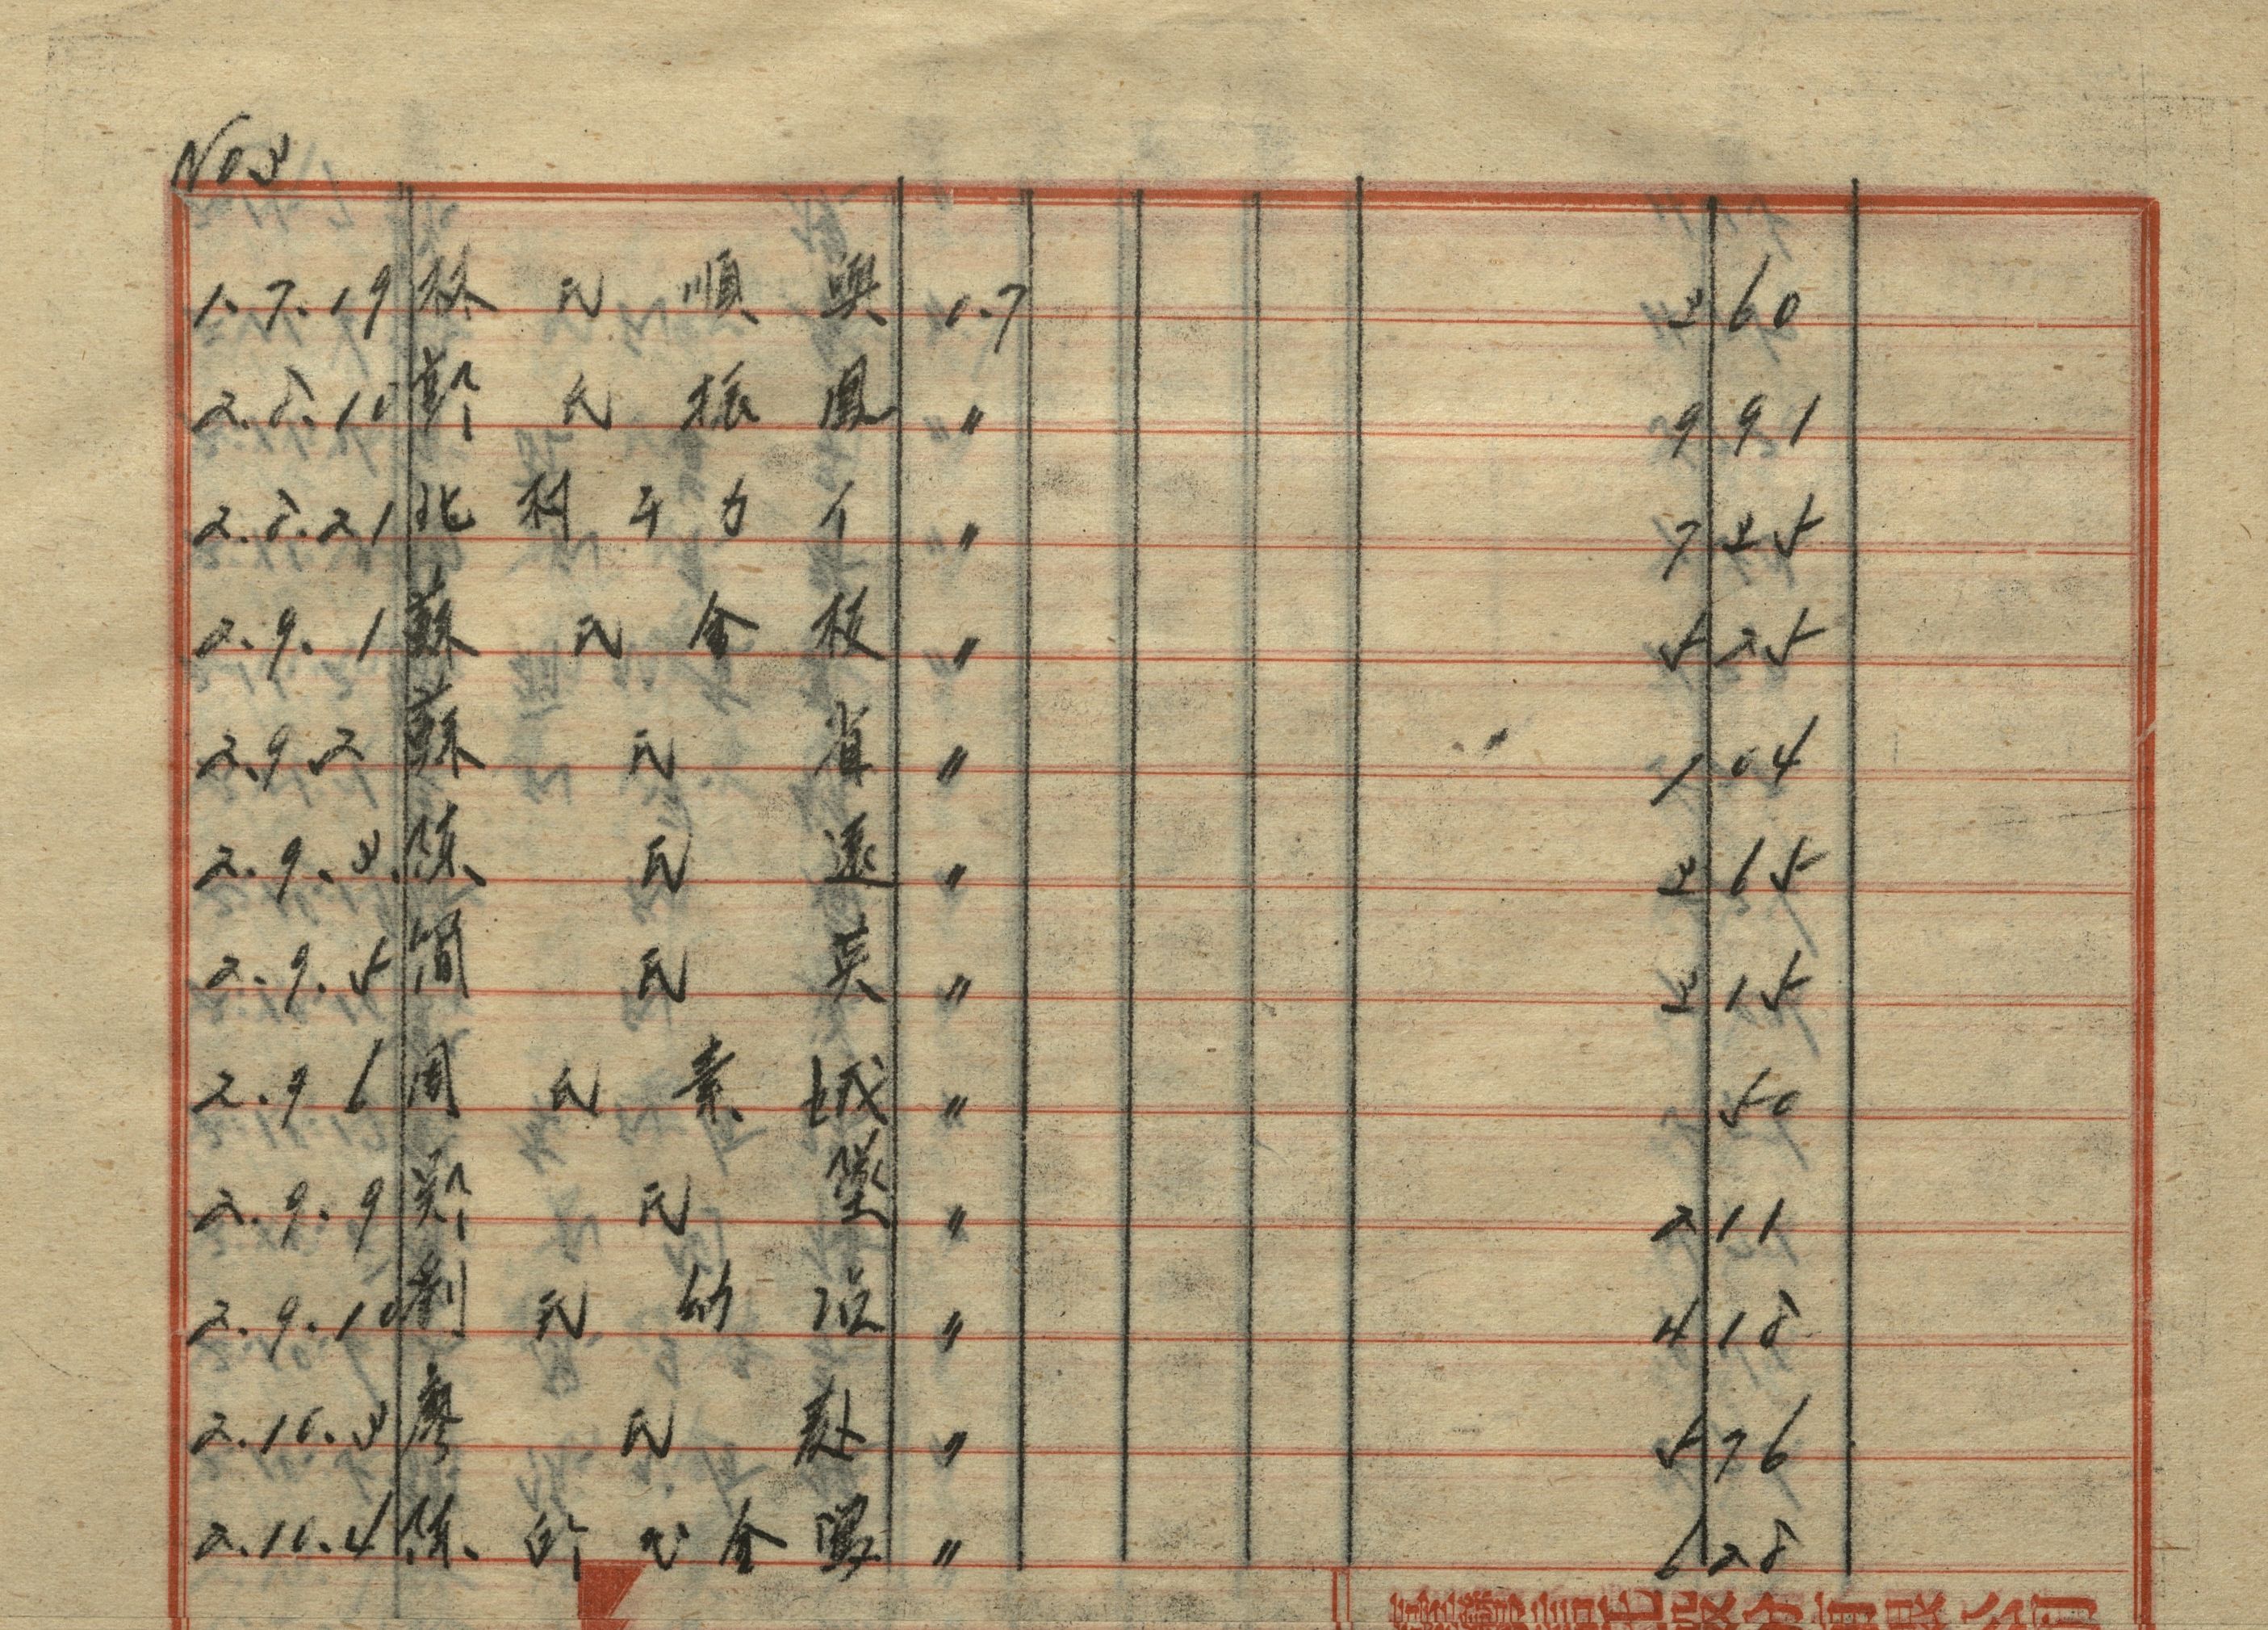 No 3
1.7.19 林氏順興 1.7 3 60
2.8.10 鄭氏振鳳 〃 9 91
2.8.21 北村千力 〃 7 35
2.9.1 蘇氏金枝 〃 5 25
2.9.2 蘇氏省 〃 1 04
2.9.3 陳氏遠 〃 3 65
2.9.5 簡氏英 〃 3 15
2.9.6 周氏素娥 〃 50
2.9.9 鄭氏 〃 2 11
2.9.10 劉氏幼 〃 4 18
2.10.3 廖氏 〃 5 76
2.10.4 陳 氏金 〃 6 28